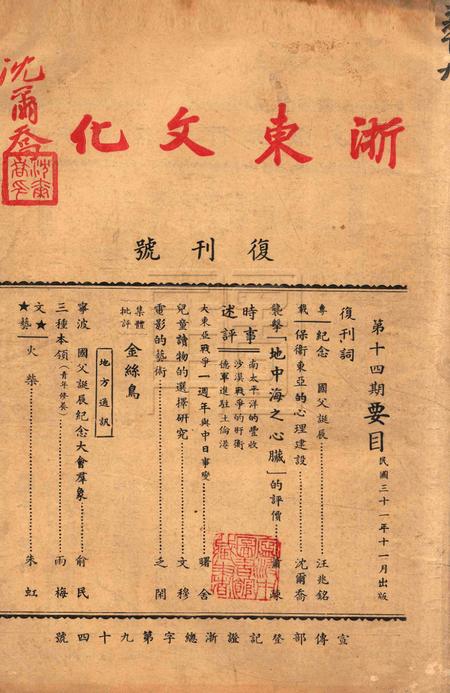 浙東文化
沈爾喬
復刊號
第十四期要目
民國三十一年十一月出版
復刊詞
專載
紀念 國父誕辰 汪兆銘
保衛東亞的心理建設 沈爾喬
襲擊「地中海之心臟」的評價
時事述評
南太平洋的豐收
沙漠戰爭的盱衡
德軍進駐土倫港
大東亞戰爭一週年與中日事變 曙舍
兒童讀物的選擇研究 文穆
電影的藝術 之閑
集體批評 金絲鳥
地方通訊
寧波 國父誕辰紀念大會群象 俞民
三種本領(青年修養) 雨梅
★文藝★ 火柴 朱虹
宣傳部登記證浙總字第九十四號